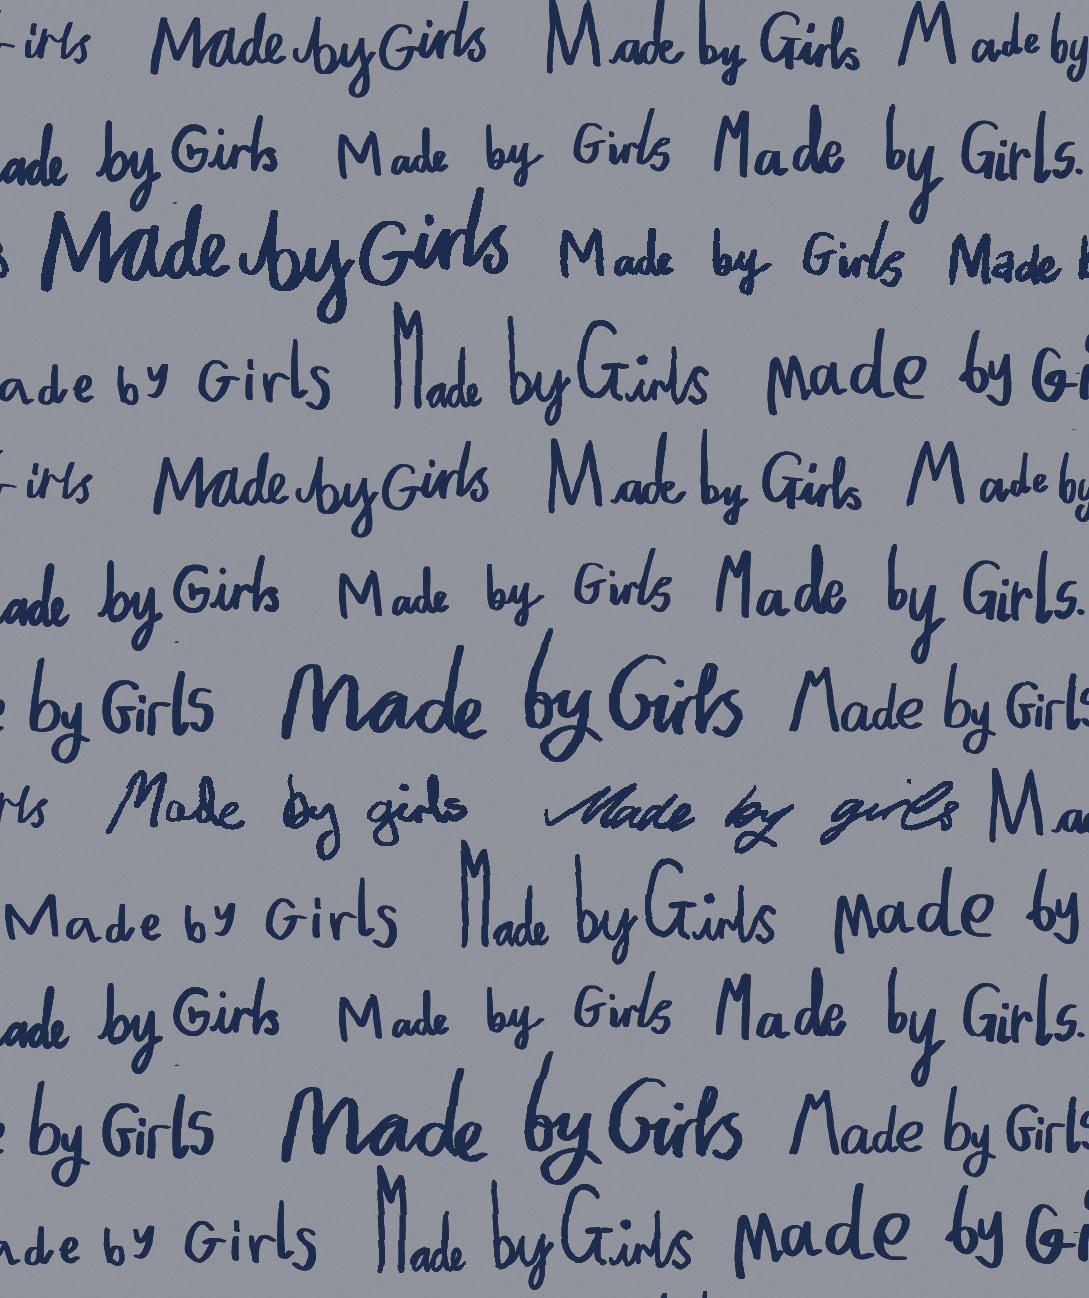 irls Made by Girls Made by Girls Made by
ade by Girls Made by Girls Made by Girls.
s Made by Girls Made by Girls Made
ade by Girls Made by Girls Made by Gi
irls Made by Girls Made by Girls Made by
ade by Girls Made by Girls Made by Girls.
e by Girls Made by Girls Made by Girls
rls Made by girls Made by girls Ma
Made by Girls Made by Girls Made by
ade by Girls Made by Girls Made by Girls.
e by Girls Made by Girls Made by Girls
ade by Girls Made by Girls Made by Gi